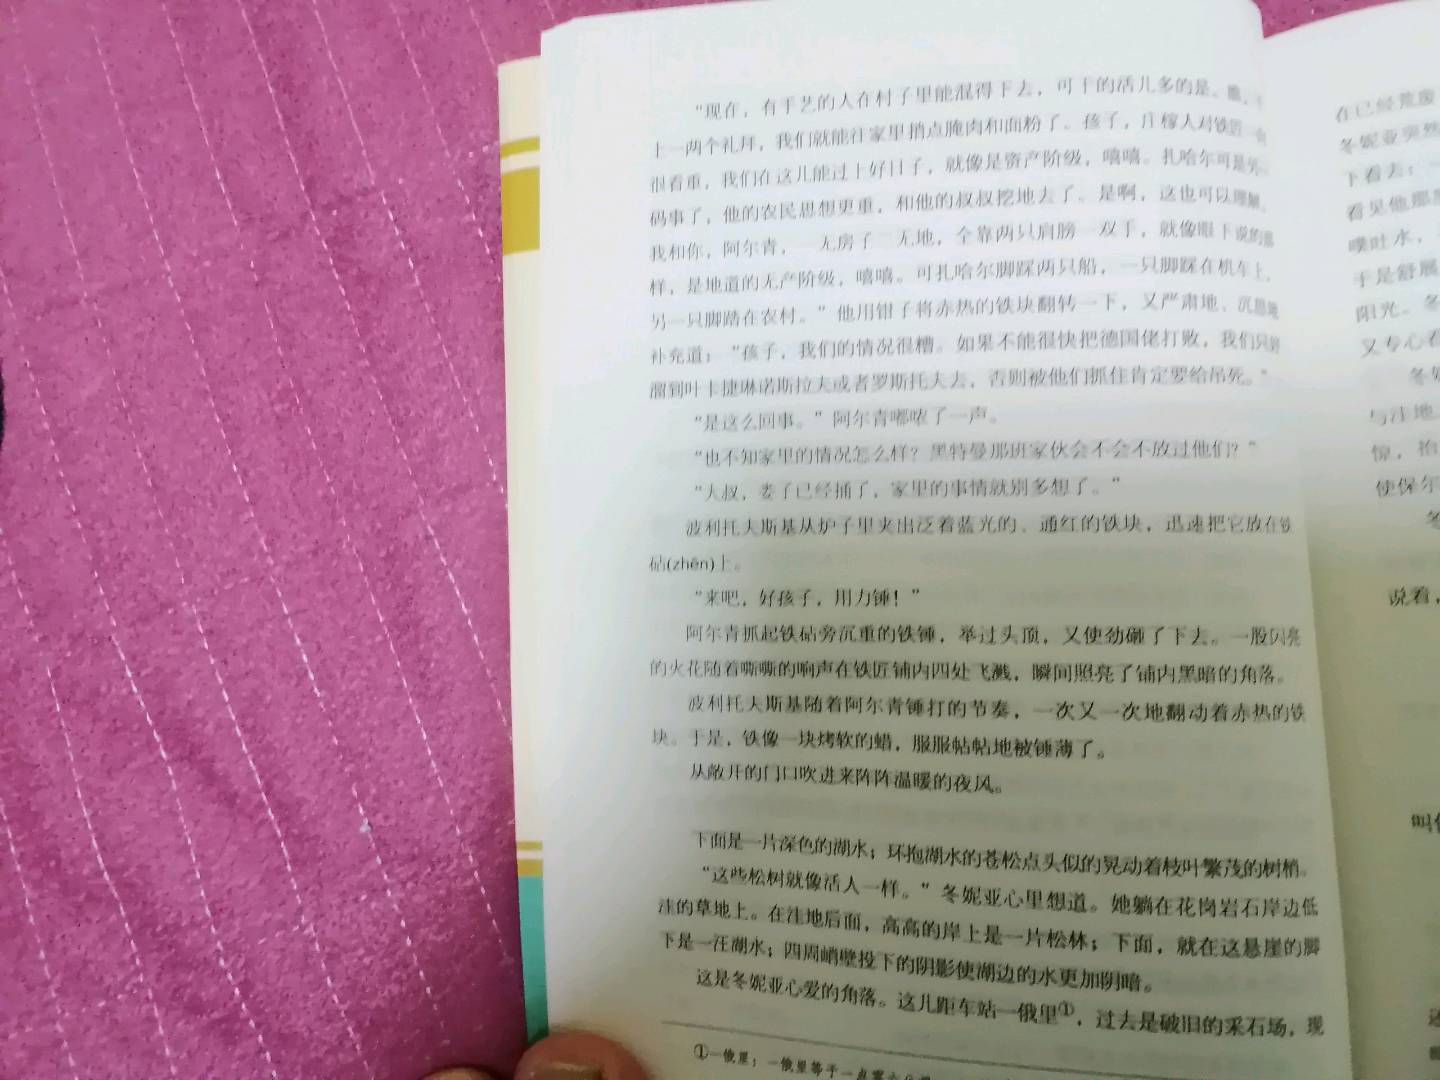 “现在，有手艺的人在村子里能混得下去，可干的活儿多的是。
上一两个礼拜，我们就能往家里捎点腌肉和面粉了。孩子，庄稼人对铁匠一向
很看重，我们在这儿能过上好日子，就像是资产阶级，嘻嘻。扎哈尔可是另
码事了，他的农民思想更重，和他的叔叔挖地去了。是啊，这也可以理解。
我和你，阿尔青，一无房子二无地，全靠两只肩膀一双手，就像眼下说的那
样，是地道的无产阶级，嘻嘻。可扎哈尔脚踩两只船，一只脚踩在机车上，
另一只脚踏在农村。”他用钳子将赤热的铁块翻转一下，又严肃地、沉思地
补充道：“孩子，我们的情况很糟。如果不能很快把德国佬打败，我们只好
溜到叶卡捷琳诺斯拉夫或者罗斯托夫去，否则被他们抓住肯定要给吊死。”
“是这么回事。”阿尔青嘟哝了一声。
“也不知家里的情况怎么样？黑特曼那班家伙会不会不放过他们？”
“大叔，娄子已经捅了，家里的事情就别多想了。”
波利托夫斯基从炉子里夹出泛着蓝光的、通红的铁块，迅速把它放在铁
砧(zhēn)上。
“来吧，好孩子，用力锤！”
阿尔青抓起铁砧旁沉重的铁锤，举过头顶，又使劲砸了下去。一股闪亮
的火花随着嘶嘶的响声在铁匠铺内四处飞溅，瞬间照亮了铺内黑暗的角落。
波利托夫斯基随着阿尔青锤打的节奏，一次又一次地翻动着赤热的铁
块。于是，铁像一块烤软的蜡，服服帖帖地被锤薄了。
从敞开的门口吹进来阵阵温暖的夜风。
下面是一片深色的湖水；环抱湖水的苍松点头似的晃动着枝叶繁茂的树梢。
“这些松树就像活人一样。”冬妮亚心里想道。她躺在花岗岩石岸边低
洼的草地上。在洼地后面，高高的岸上是一片松林；下面，就在这悬崖的脚
下是一汪湖水；四周峭壁投下的阴影使湖边的水更加阴暗。
这是冬妮亚心爱的角落。这儿距车站一俄里①，过去是破旧的采石场，现
①一俄里：一俄里等于一点零六
在已经荒废
冬妮亚突然
下看去：
看见他那
噗吐水，
于是舒展
阳光。冬
又专心看
冬妮
与洼地
惊，抬
使保尔
冬
说看，
叫
还